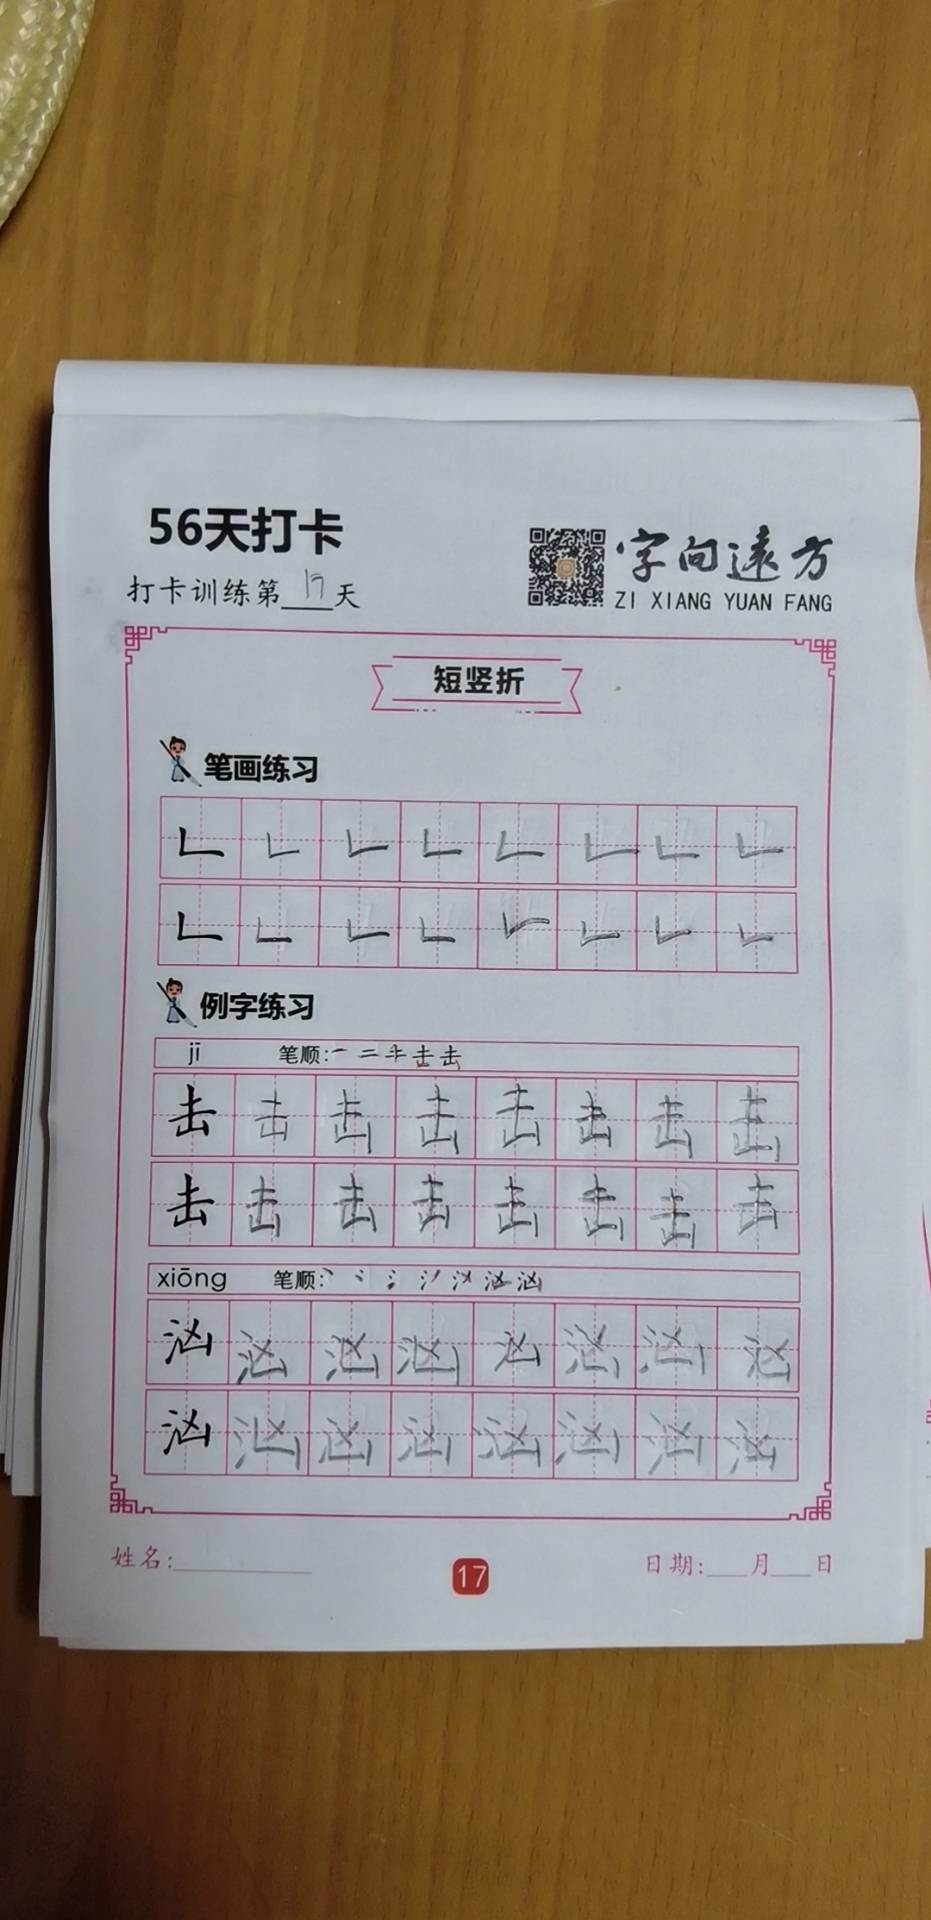 56天打卡
字向遠方
ZI XIANG YUAN FANG
打卡训练第17天
短竖折
笔画练习
𠃊 𠃊 𠃊 𠃊 𠃊 𠃊 𠃊 𠃊
𠃊 𠃊 𠃊 𠃊 𠃊 𠃊 𠃊 𠃊
例字练习
jī 笔顺:一 二 キ 击 击
击 击 击 击 击 击 击 击
击 击 击 击 击 击 击 击
xiōng 笔顺:丶 冫 氵 汹 汹
汹 汹 汹 汹 汹 汹 汹 汹
汹 汹 汹 汹 汹 汹 汹 汹
姓名:
17
日期:___月___日